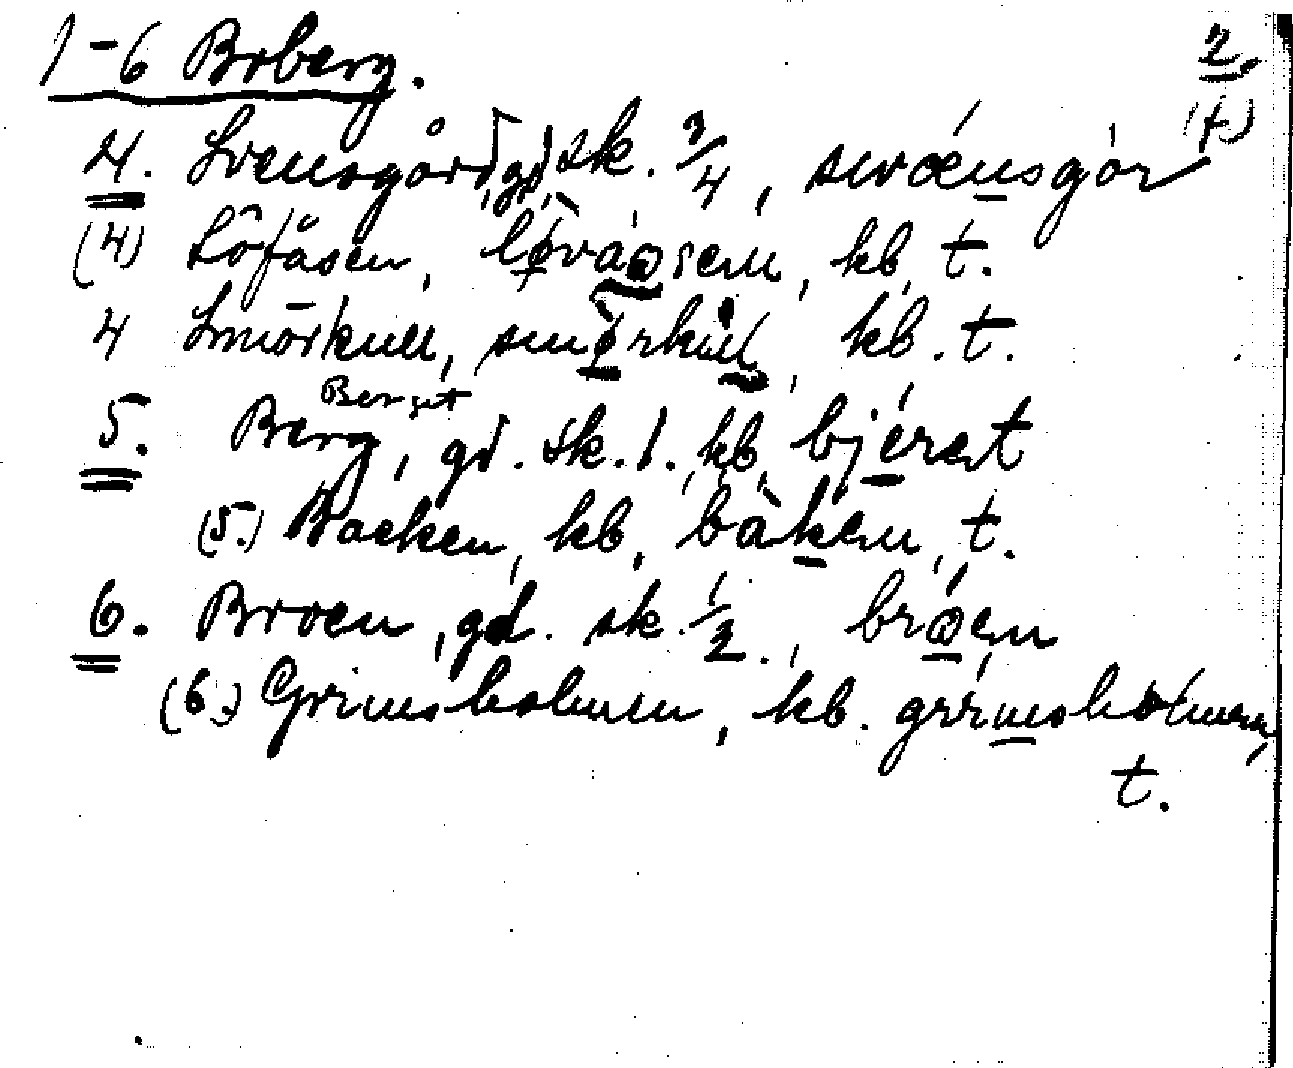 1-6 Boberg. 2.
4. Svensgård, gd, sk. 3/4, svæ̀nsgår (t.)
(4) Löfåsen, lø̀våsen, kb, t.
4 Smörkull, smø̀rkùll, kb. t.
Berget
5. Berg, gd. sk. 1. kb, bjéret
(5.) Backen, kb, bàken, t.
6. Broen, gd. sk. 1/2., bróen
(6.) Grimsholmen, kb. grímsholmen,
t.